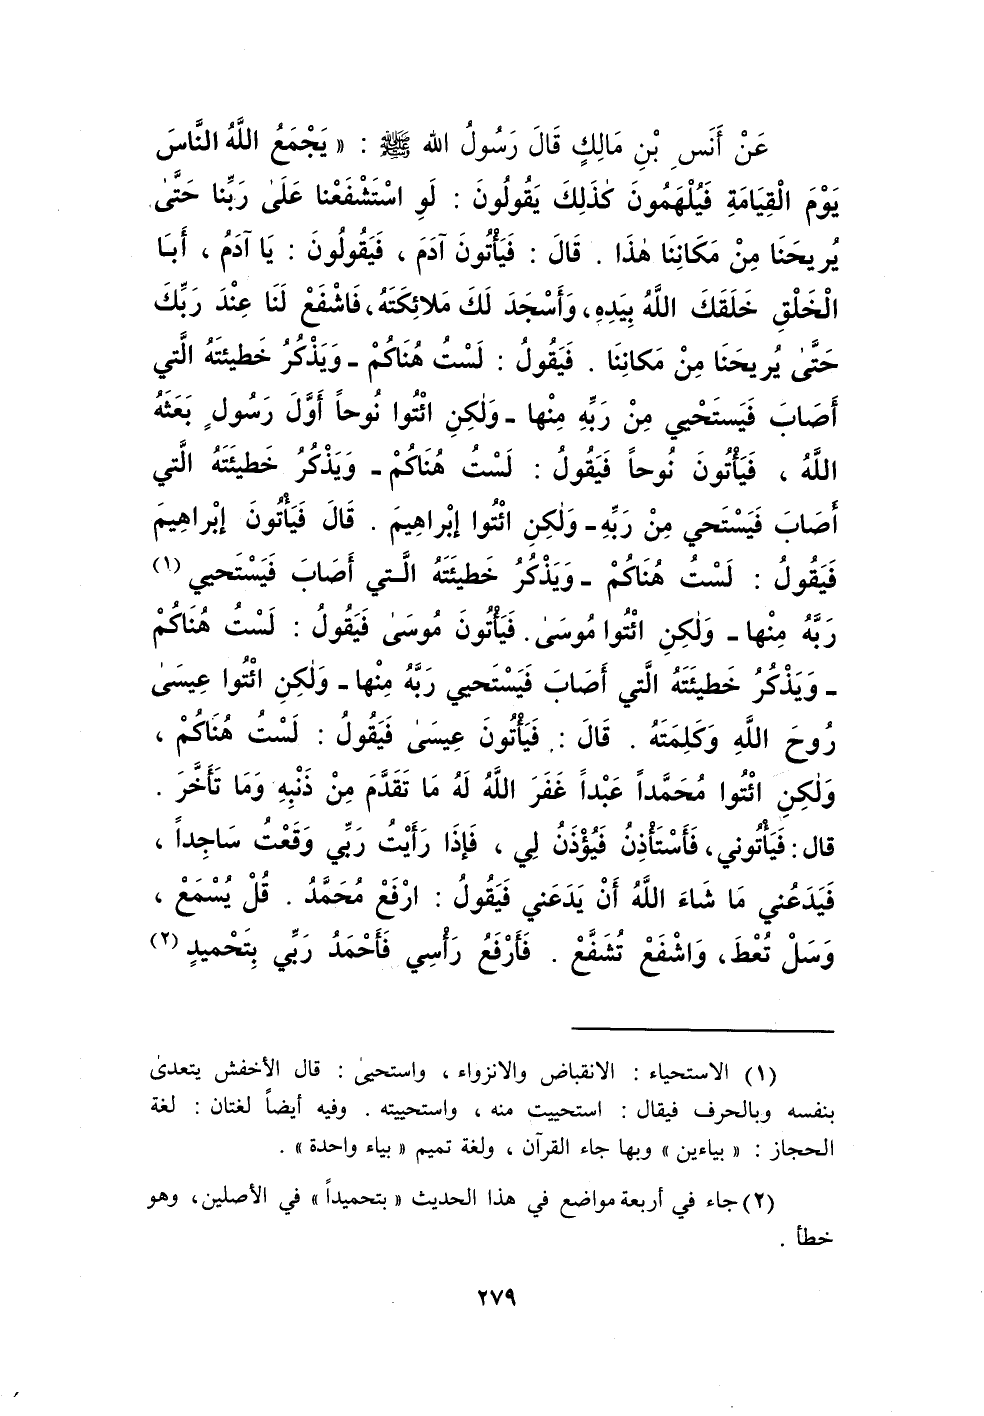 عَنْ أَنَسِ بْنِ مَالِكٍ قَالَ رَسُولُ الله ﷺ : « يَجْمَعُ اللَّهُ النَّاسَ
يَوْمَ الْقِيَامَةِ فَيُلْهَمُونَ كَذٰلِكَ يَقُولُونَ : لَوِ اسْتَشْفَعْنا عَلَىٰ رَبِّنا حَتَّىٰ
يُرِيحَنَا مِنْ مَكَانِنَا هٰذَا . قَالَ : فَيَأْتُونَ آدَمَ ، فَيَقُولُونَ : يَا آدَمُ ، أَبَا
الْخَلْقِ خَلَقَكَ اللَّهُ بِيَدِهِ، وَأَسْجَدَ لَكَ مَلائِكَتَهُ، فَاشْفَعْ لَنَا عِنْدَ رَبِّكَ
حَتَّىٰ يُرِيحَنَا مِنْ مَكانِنَا . فَيَقُولُ : لَسْتُ هُنَاكُمْ ـ وَيَذْكُرُ خَطيئتَهُ الَّتي
أَصَابَ فَيَستَحْيي مِنْ رَبِّهِ مِنْها ـ وَلٰكِنِ ائْتُوا نُوحاً أَوَّلَ رَسُولٍ بَعَثهُ
اللَّهُ ، فَيَأْتُونَ نُوحاً فَيَقُولُ : لَسْتُ هُنَاكُمْ ـ وَيَذْكُرُ خَطيئَتَهُ الَّتي
أَصَابَ فَيَسْتَحي مِنْ رَبِّهِ ـ وَلٰكِنِ ائْتُوا إبْراهِيمَ . قَالَ فَيَأْتُونَ إبْراهِيمَ
فَيَقُولُ : لَسْتُ هُنَاكُمْ ـ وَيَذْكُرُ خَطيئَتَهُ الَّـتي أَصَابَ فَيَسْتَحيي (١)
رَبَّهُ مِنْها ـ وَلٰكِنِ ائْتُوا مُوسَىٰ. فَيَأْتُونَ مُوسَىٰ فَيَقُولُ : لَسْتُ هُنَاكُمْ
ـ وَيَذْكُرُ خَطيئَتَهُ الَّتي أَصَابَ فَيَسْتَحيي رَبَّهُ مِنْها ـ وَلٰكِنِ ائْتُوا عِيسَىٰ
رُوحَ اللَّهِ وَكَلِمَتَهُ . قَالَ : فَيَأْتُونَ عِيسَىٰ فَيَقُولُ : لَسْتُ هُنَاكُمْ ،
وَلٰكِنِ ائْتُوا مُحَمَّداً عَبْداً غَفَرَ اللَّهُ لَهُ مَا تَقَدَّمَ مِنْ ذَنْبِهِ وَمَا تَأَخَّرَ .
قال : فَيَأْتُوني، فَأَسْتَأْذِنُ فَيُؤْذَنُ لِي ، فَإذَا رَأَيْتُ رَبِّي وَقَعْتُ سَاجِداً ،
فَيَدَعُني مَا شَاءَ اللَّهُ أَنْ يَدَعَني فَيَقُولُ : ارْفَعْ مُحَمَّدُ . قُلْ يُسْمَعْ ،
وَسَلْ تُعْطَ، وَاشْفَعْ تُشَفَّعْ . فَأَرْفَعُ رَأْسِي فَأَحْمَدُ رَبِّي بِتَحْميدٍ (٢)
(١) الاستحياء : الانقباض والانزواء ، واستحيىٰ : قال الأخفش يتعدىٰ
بنفسه وبالحرف فيقال : استحييت منه ، واستحييته . وفيه أيضاً لغتان : لغة
الحجاز : « بياءين » وبها جاء القرآن ، ولغة تميم « بياء واحدة » .
(٢) جاء في أربعة مواضع في هذا الحديث « بتحميداً » في الأصلين، وهو
خطأ .
٢٧٩